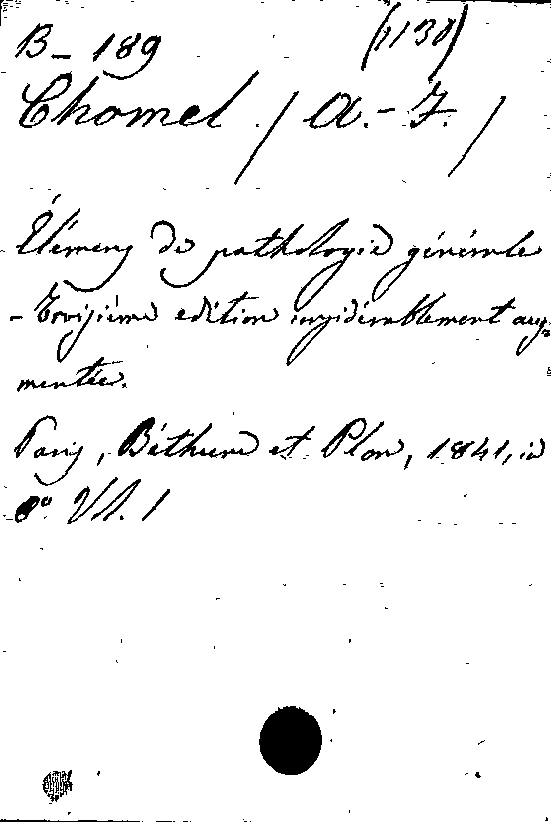 B-189 (1138)
Chomel / A.-F. /
Élémens de pathologie générale
- Troisième edition considérablement aug-
mentée.
Paris, Béthune et Plon, 1841, in
8º. Vol. 1